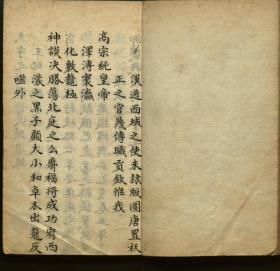 漢通西域之使未隸版圖唐置祆
正之官幾傳職貢欽惟我
高宗純皇帝
澤溥寰瀛
化敷龍極
神謨決勝蕩北庭之么福將成功窮西
濊之黑子顧大小和卓木出籠反
噬外